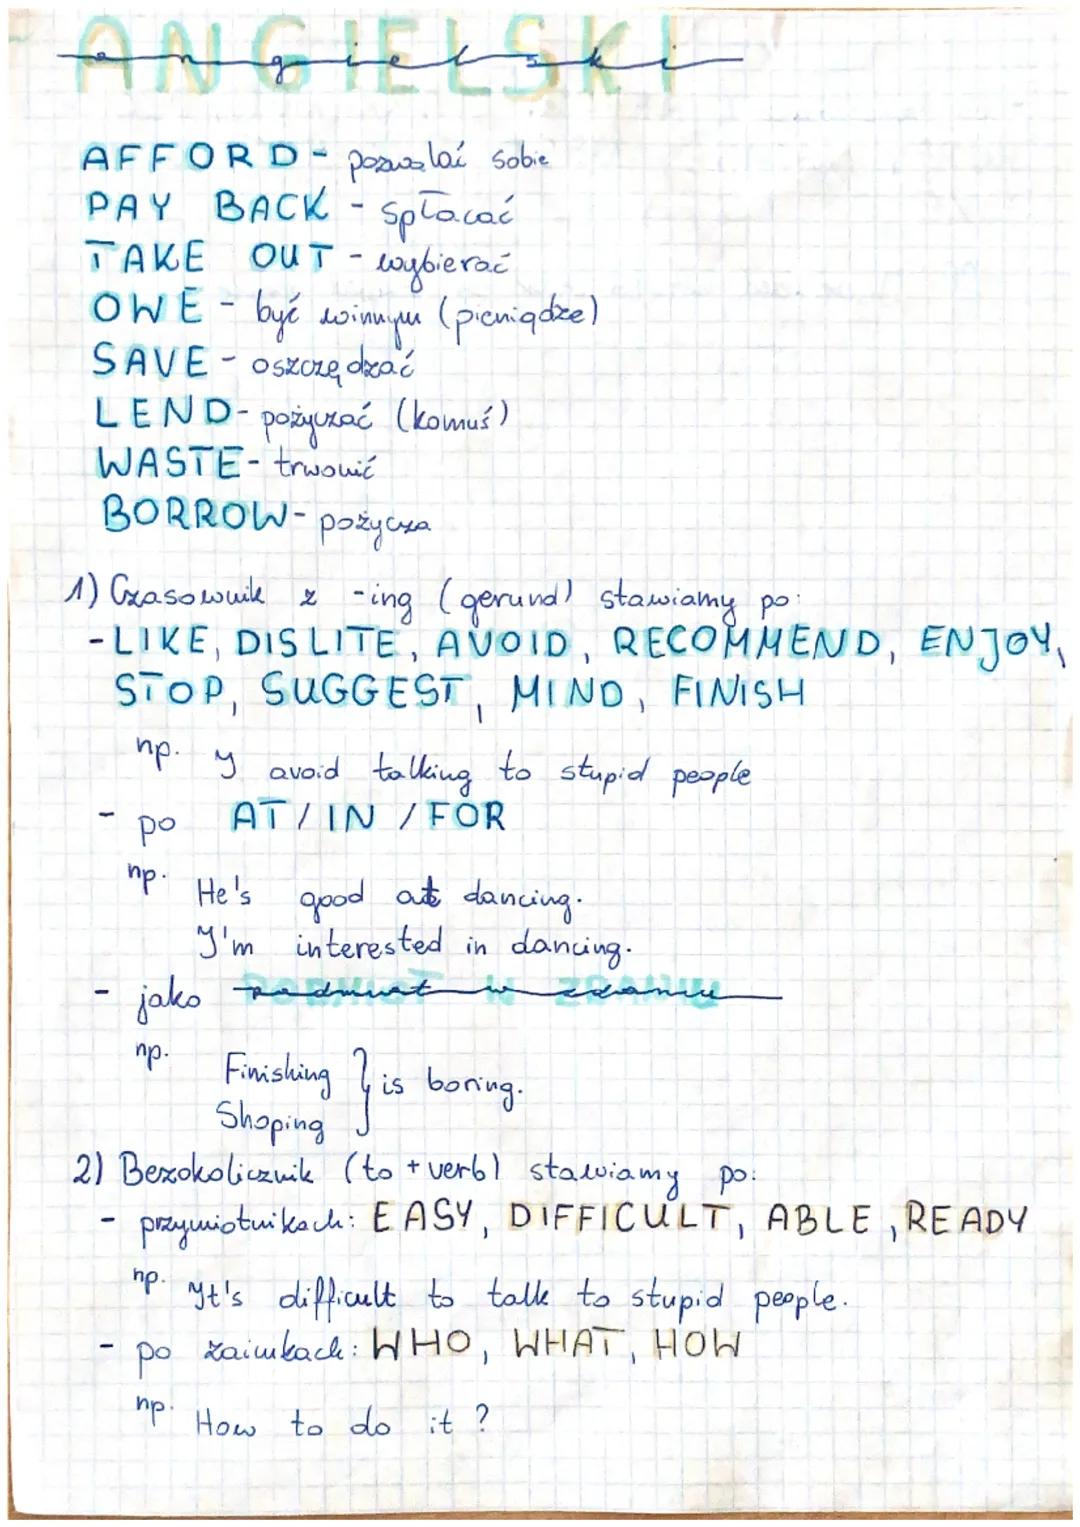 ANGIELSKI
angielski
AFFORD - pozwalać sobie
PAY BACK - spłacać
TAKE OUT - wybierać
OWE - być winnym (pieniądze)
SAVE - oszczędzać
LEND - pożyczać (komuś)
WASTE - trwonić
BORROW - pożycza
1) Czasownik z -ing (gerund) stawiamy po:
- LIKE, DISLITE, AVOID, RECOMMEND, ENJOY,
STOP, SUGGEST, MIND, FINISH
np. I avoid talking to stupid people
- po AT / IN / FOR
np. He's good at dancing.
I'm interested in dancing.
- jako podmiot w zdaniu
np. Finishing } is boring.
Shoping
2) Bezokolicznik (to + verb) stawiamy po:
- przymiotnikach: EASY, DIFFICULT, ABLE, READY
np. It's difficult to talk to stupid people.
- po zaimkach: WHO, WHAT, HOW
np. How to do it?